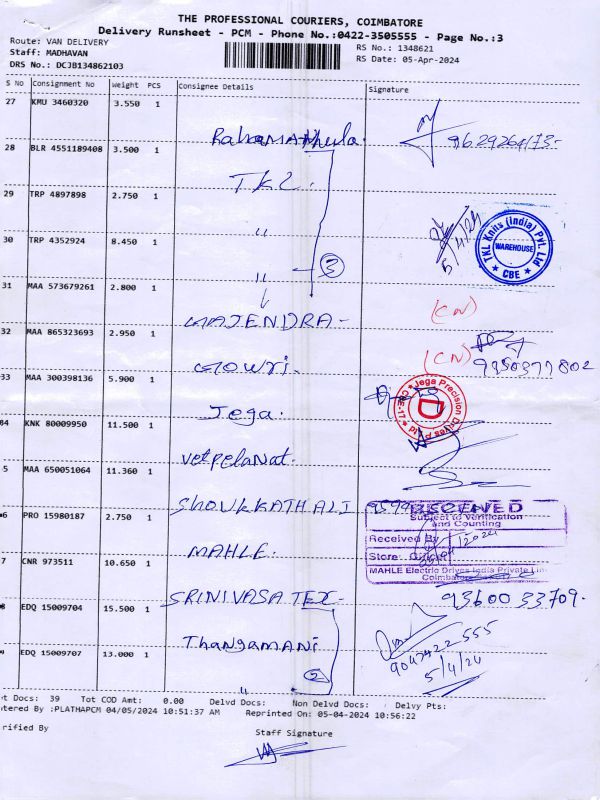 THE PROFESSIONAL COURIERS, COIMBATORE
Delivery Runsheet - PCM - Phone No.:0422-3505555 - Page No.:3
Route: VAN DELIVERY
RS No.: 1348621
Staff: MADHAVAN
RS Date: 05-Apr-2024
DRS No.: DCJB134862103
S No Consignment No Weight PCS Consignee Details Signature
27 KMU 3460320 3.550 1
9629264173-
28 BLR 4551189408 3.500 1
TKL
29 TRP 4897898 2.750 1
"
5/4/24
TKL Knits (India) Pvt. Ltd
WAREHOUSE
* CBE *
30 TRP 4352924 8.450 1
" 3
31 MAA 573679261 2.800 1
GAJENDRA - (CN)
32 MAA 865323693 2.950 1
Gowri. (CN)
33 MAA 300398136 5.900 1
Jega.
Jega Precision Drives P Ltd
D
34 KNK 80009950 11.500 1
5 MAA 650051064 11.360 1
SHOUKKATH ALI
RECEIVED
Subject to Verification
and Counting
36 PRO 15980187 2.750 1
MAHLE.
Received By
Store
MAHLE Electric Drives India Private Lim
Coimbatore
7 CNR 973511 10.650 1
SRINIVASA TEX- 93600 33709.
8 EDQ 15009704 15.500 1
Thangamani
9047422 555
5/4/24
EDQ 15009707 13.000 1
" 2
t Docs: 39 Tot COD Amt: 0.00 Delvd Docs: Non Delvd Docs: Delvy Pts:
tered By :PLATHAPCM 04/05/2024 10:51:37 AM Reprinted On: 05-04-2024 10:56:22
rified By Staff Signature